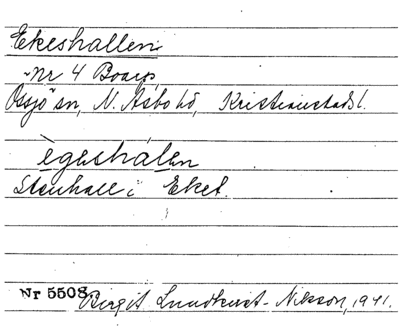 Ekeshallen
nr 4 Boarp
Össjö sn, N. Åsbo hd, Kristianstads l.
ègeshálen
Stenhall i Eket.
Nr 5508. Birgit Lundkvist-Nilsson, 1941.